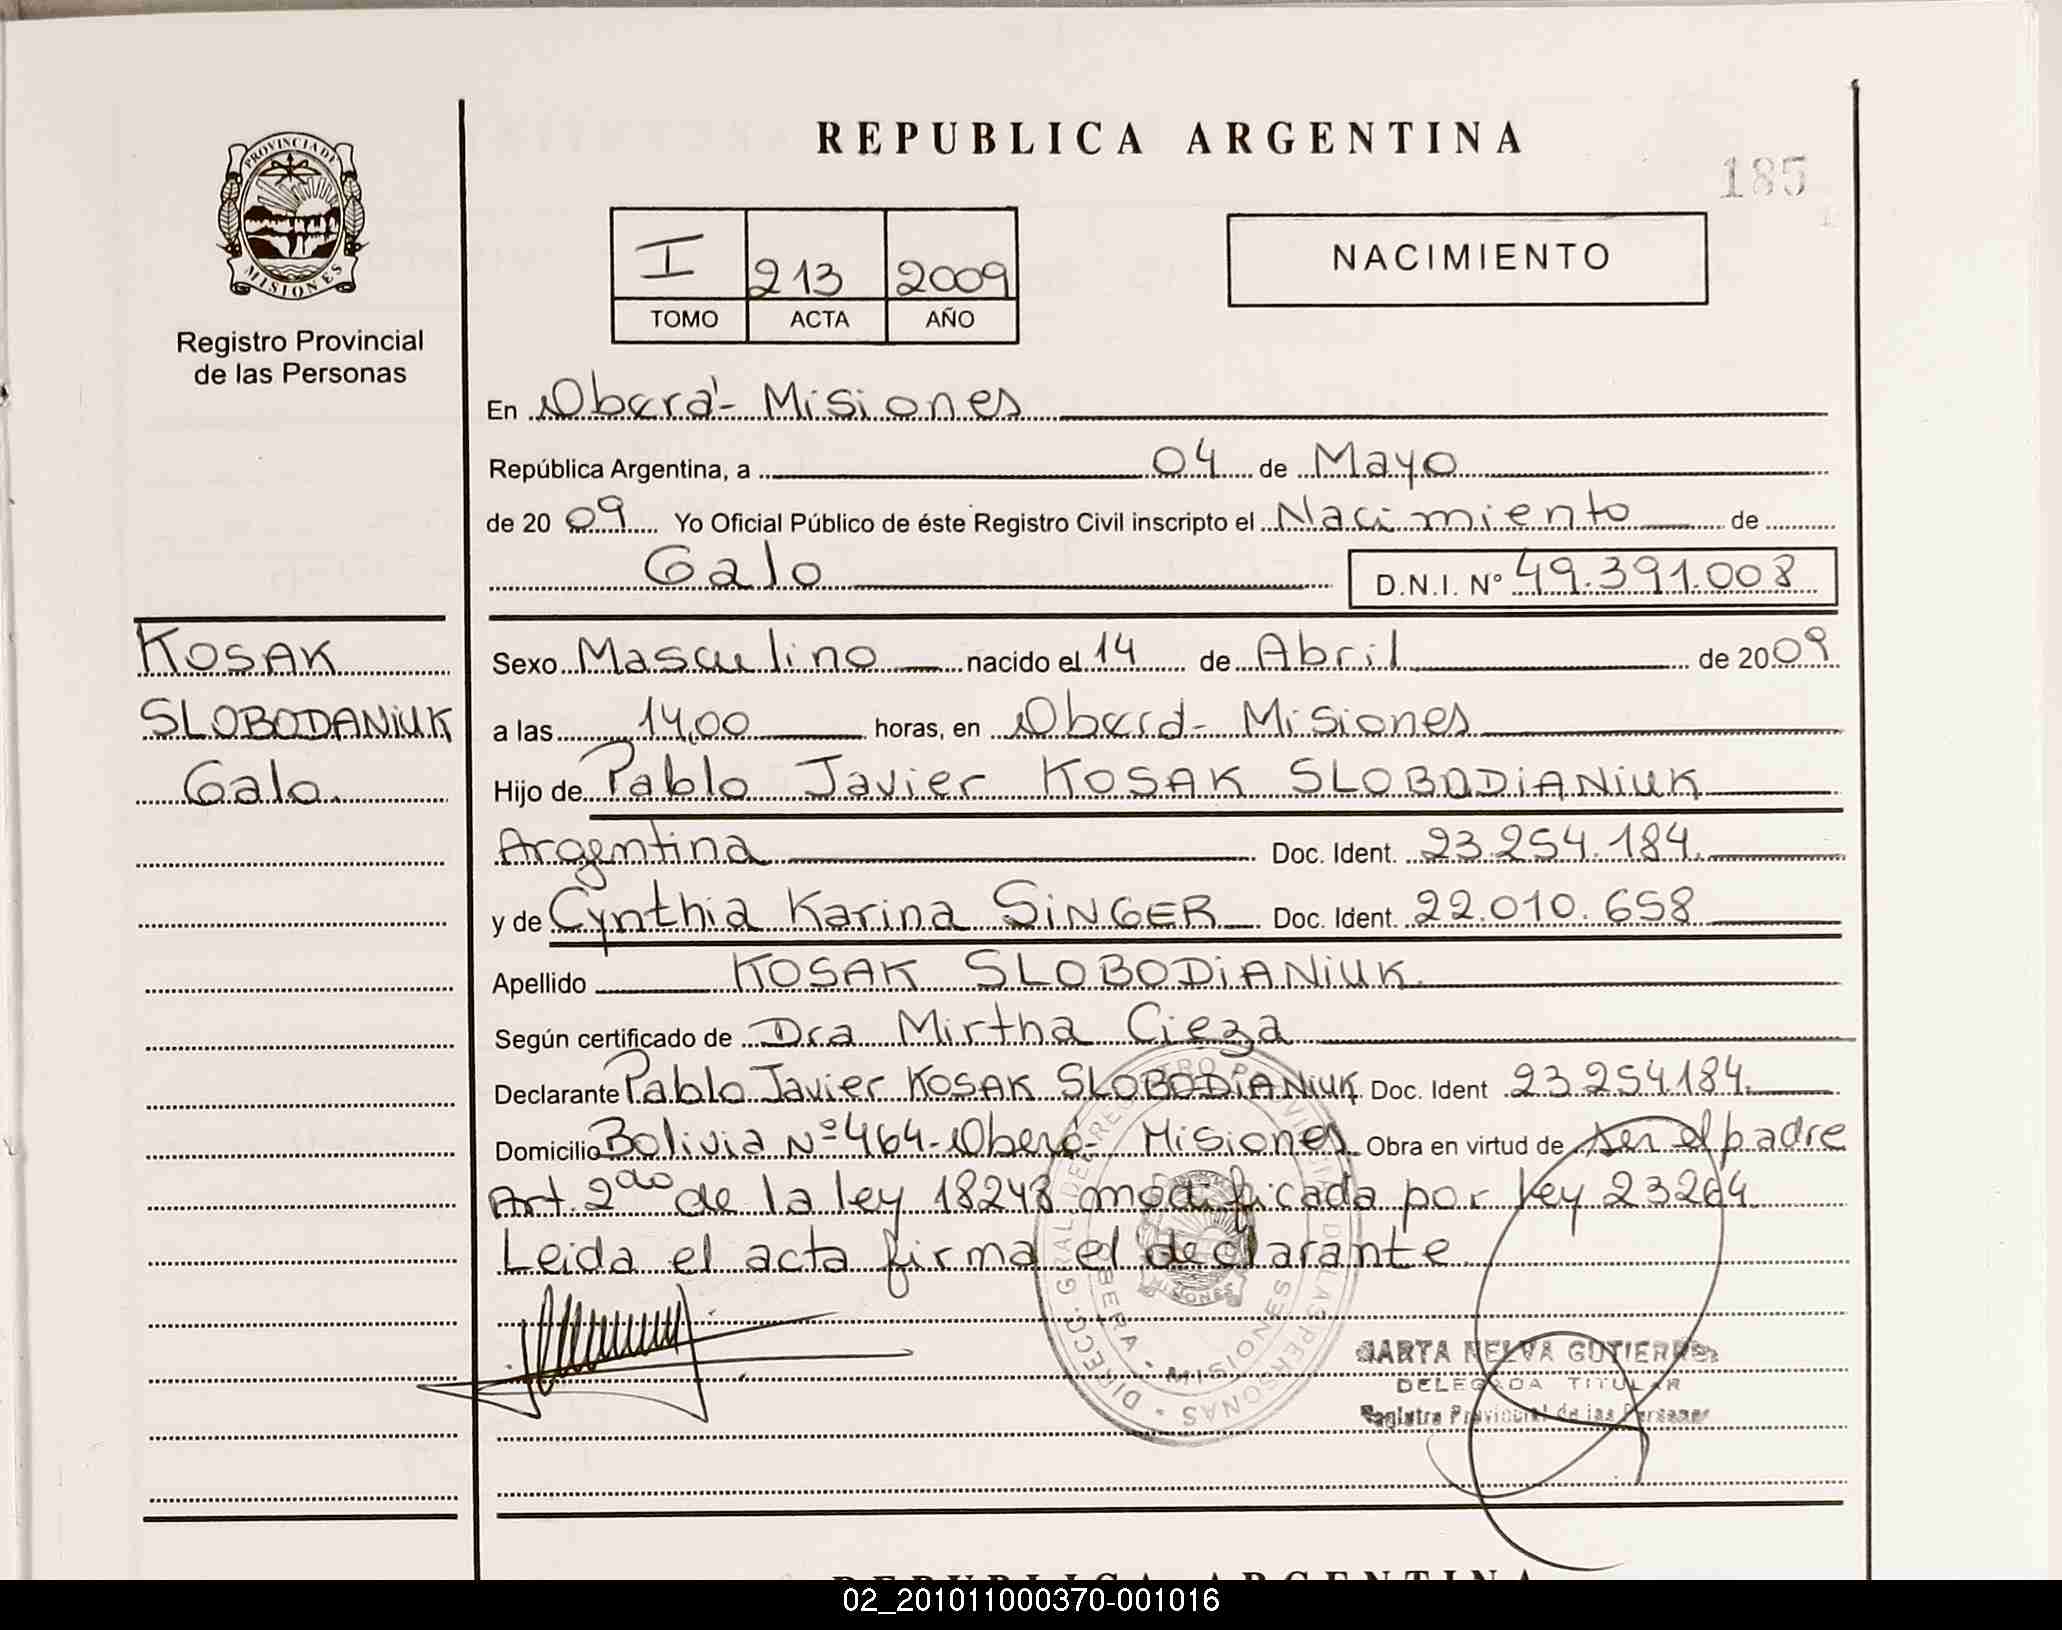 REPUBLICA ARGENTINA
185
PROVINCIA DE
MISIONES
Registro Provincial
de las Personas
I 213 2009
TOMO ACTA AÑO
NACIMIENTO
En Oberá - Misiones
República Argentina, a 04 de Mayo
de 20 09 Yo Oficial Público de éste Registro Civil inscripto el Nacimiento de
Galo D.N.I. Nº 49.391.008
KOSAK
SLOBODANiUK
Galo.
Sexo Masculino nacido el 14 de Abril de 20 09
a las 14,00 horas, en Oberá - Misiones
Hijo de Pablo Javier KOSAK SLOBODiANiUK
Argentina Doc. Ident. 23.254.184.
y de Cynthia Karina SiNGER Doc. Ident. 22.010.658
Apellido KOSAK SLOBODiANiUK.
Según certificado de Dra Mirtha Cieza
Declarante Pablo Javier KOSAK SLOBODiANiUK Doc. Ident 23.254.184.
Domicilio Bolivia Nº 464 - Oberá - Misiones Obra en virtud de ser el padre
Art. 2do de la ley 18248 modificada por ley 23264.
Leida el acta firma el declarante
DIRECC. GRAL DEL REGISTRO PROVINCIAL DE LAS PERSONAS
OBERA - MISIONES
MARTA NELVA GUTIERREZ
DELEGADA TITULAR
Registro Provincial de las Personas
REPUBLICA ARGENTINA
02_201011000370-001016